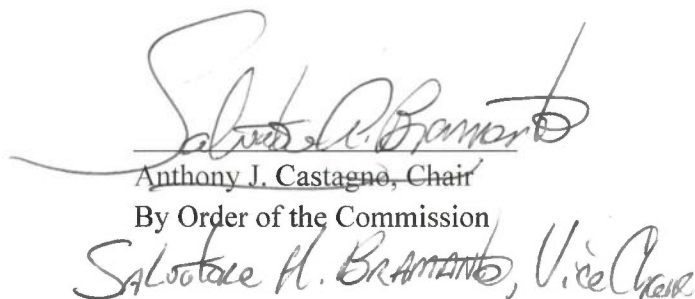 Salvatore A. Bramante
Anthony J. Castagno, Chair
By Order of the Commission
SALVATORE A. BRAMANTE, Vice Chair